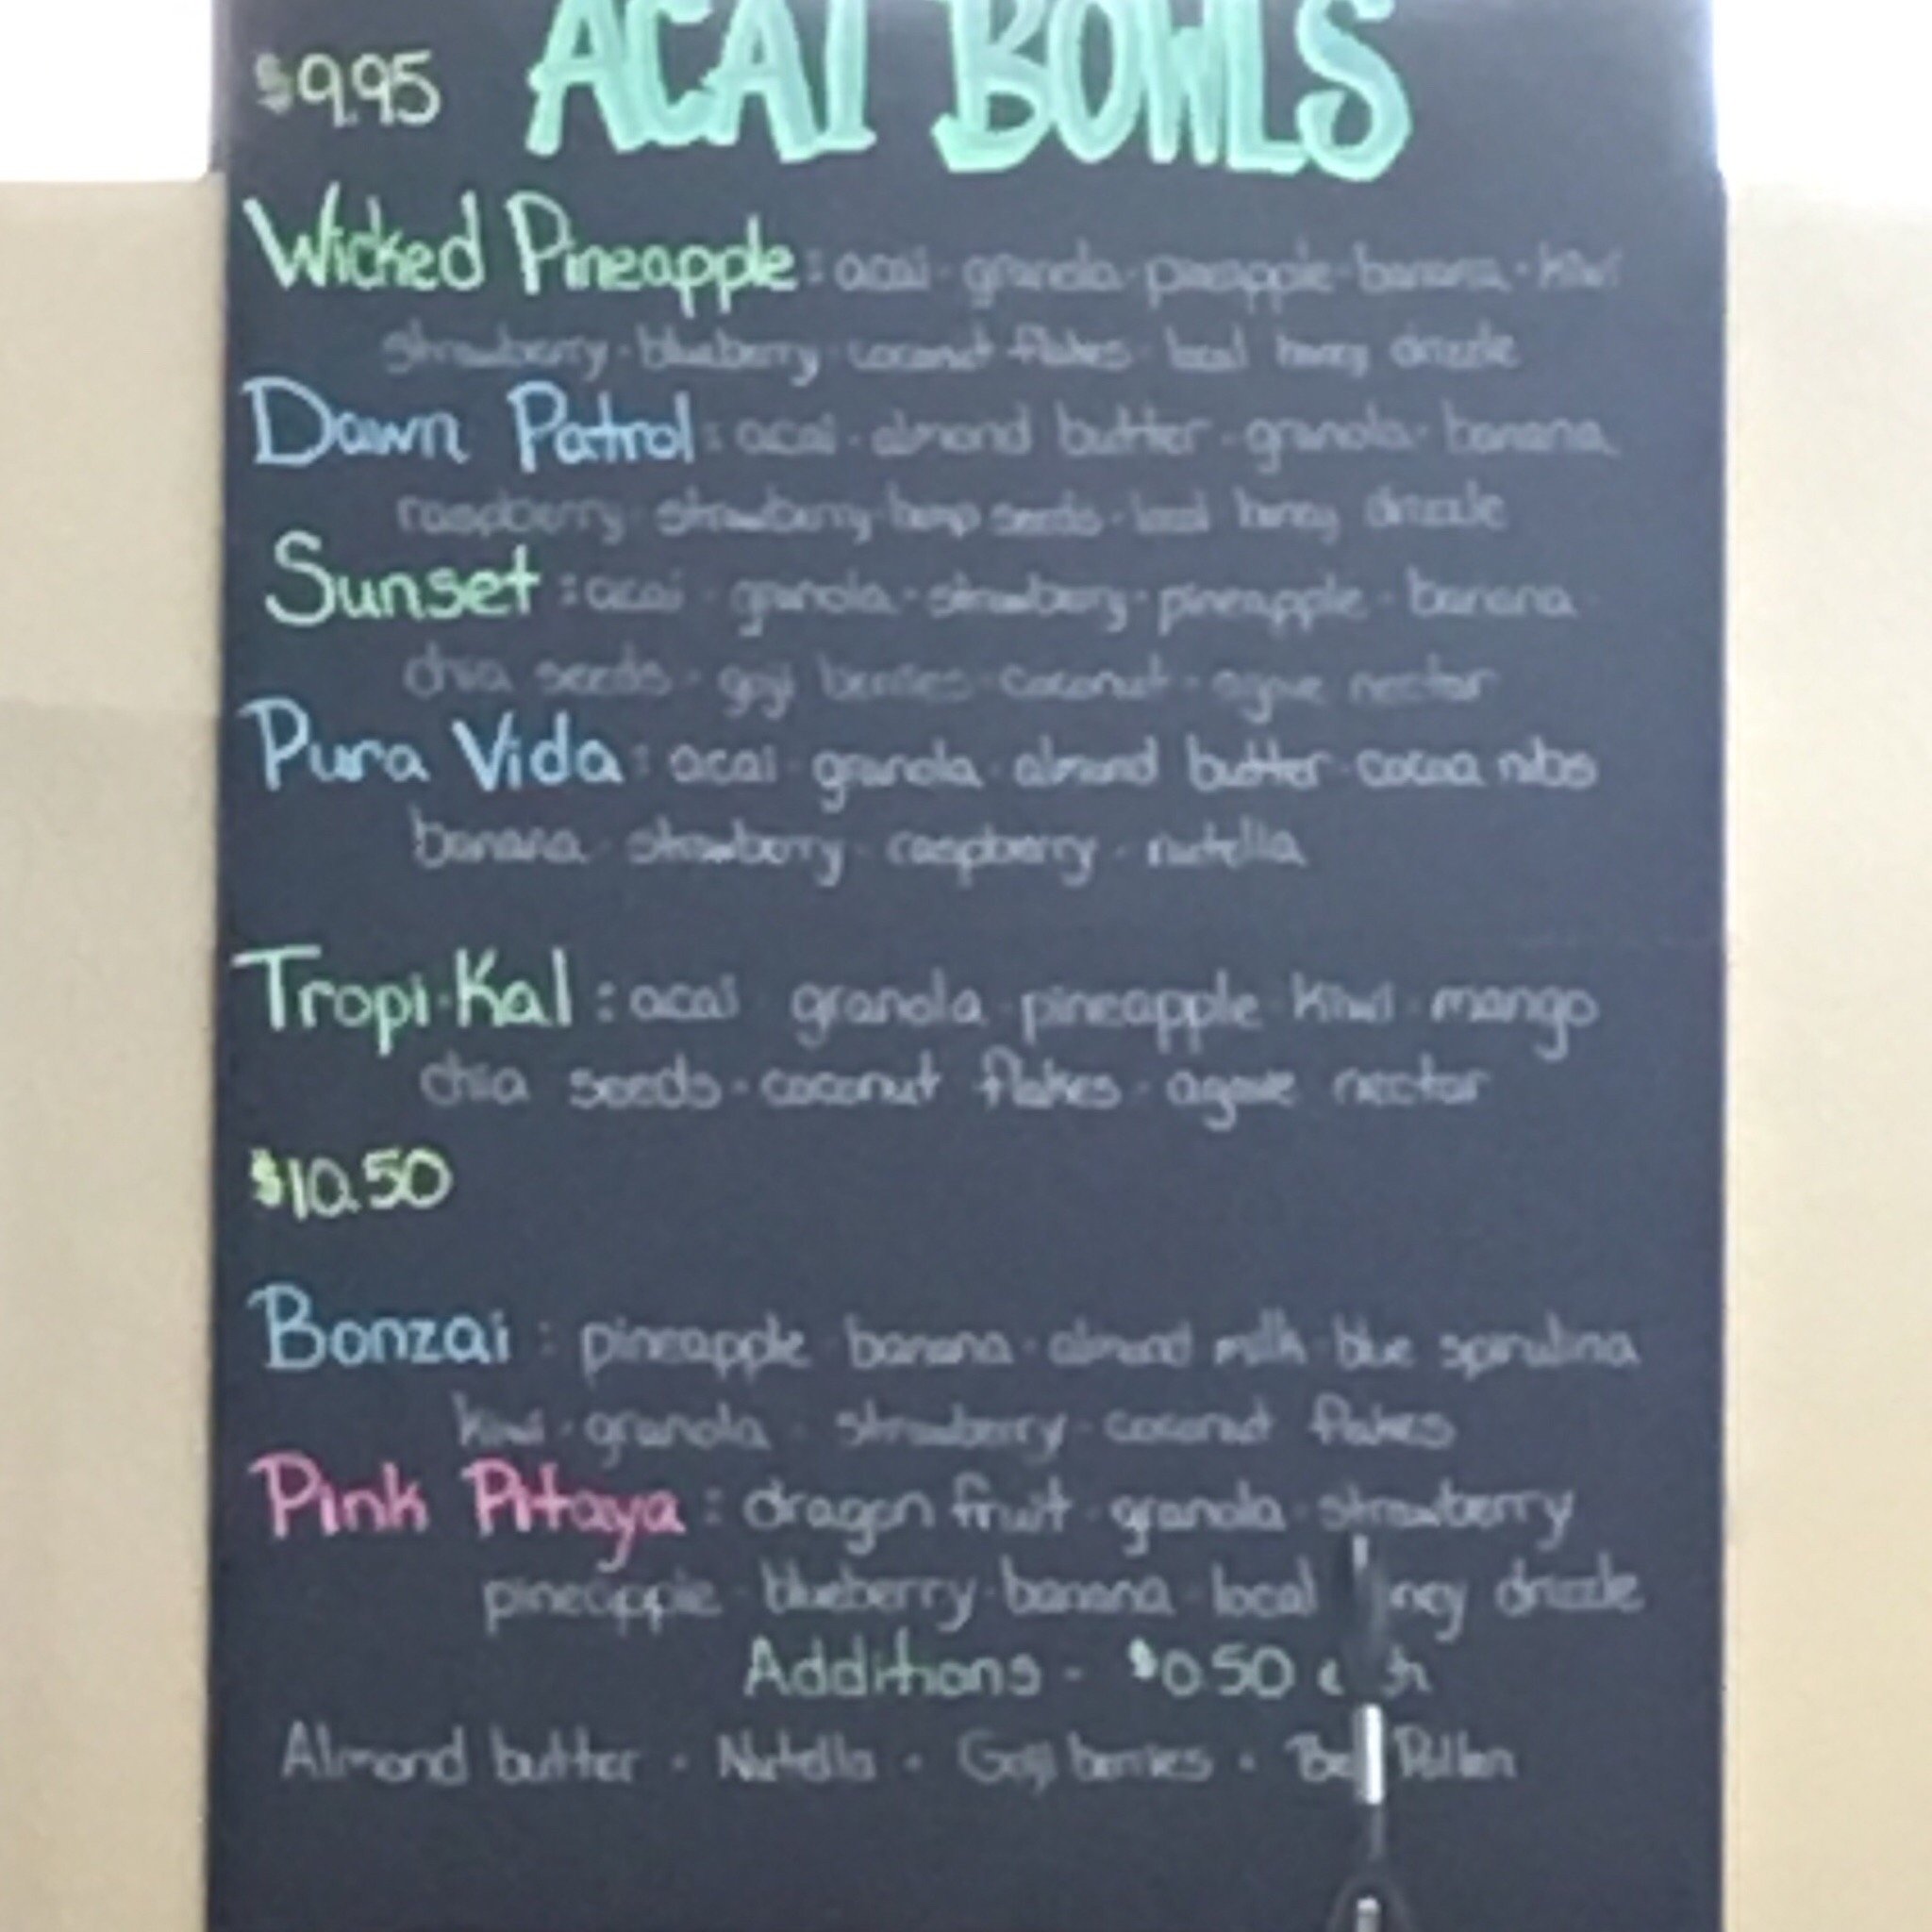 ACAI BOWLS
$9.95
Wicked Pineapple: acai · granola · pineapple · banana · kiwi
strawberry · blueberry · coconut flakes · local honey drizzle
Dawn Patrol: acai · almond butter · granola · banana
raspberry · strawberry · hemp seeds · local honey drizzle
Sunset: acai · granola · strawberry · pineapple · banana ·
chia seeds · goji berries · coconut · agave nectar
Pura Vida: acai · granola · almond butter · cocoa nibs
banana · strawberry · raspberry · nutella
Tropi·Kal: acai granola · pineapple · kiwi · mango
chia seeds · coconut flakes · agave nectar
$10.50
Bonzai: pineapple banana · almond milk · blue spirulina
kiwi · granola · strawberry · coconut flakes
Pink Pitaya: dragon fruit · granola · strawberry
pineapple · blueberry · banana · local drizzle
Additions - $0.50
Almond butter · Nutella · Goji berries · Bee Pollen